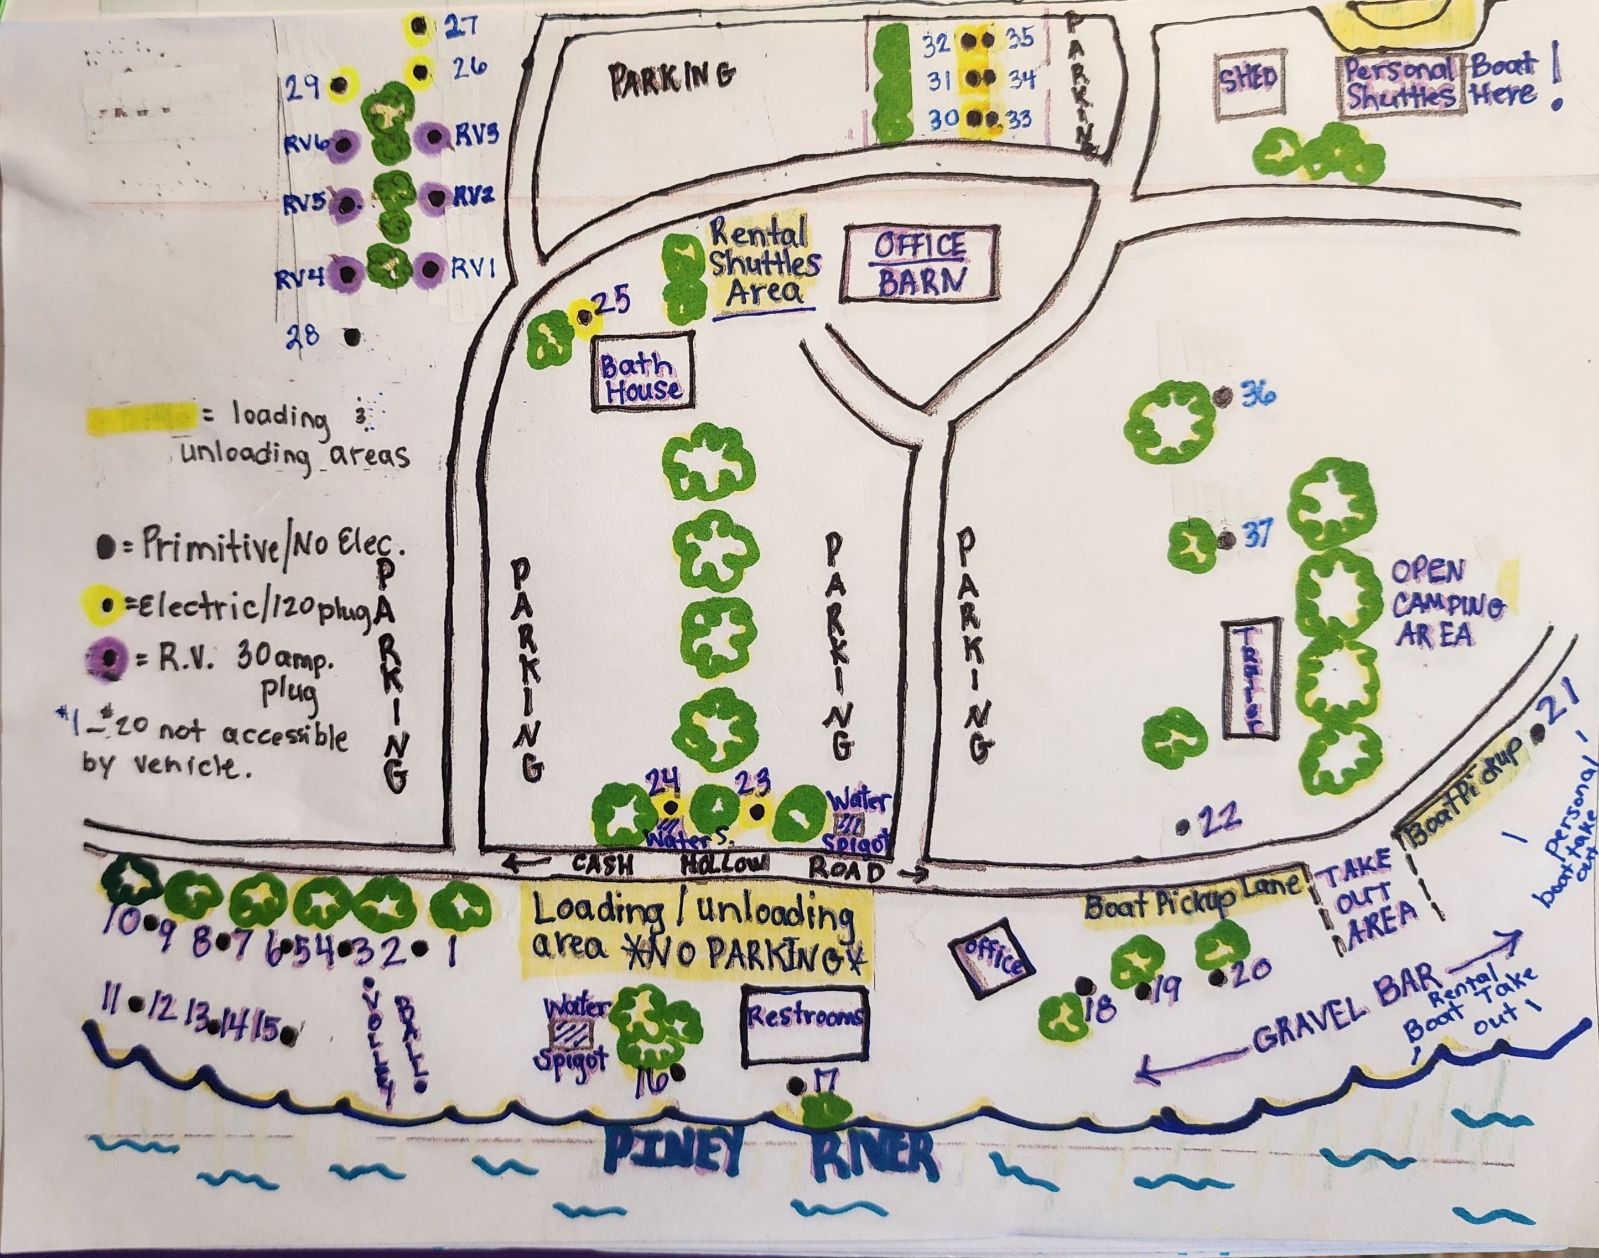 27
26
29
RV6
RV3
RV5
RV2
RV4
RV1
28
PARKING
32
35
31
34
30
33
PARKING
SHED
Personal Boat
Shuttles Here!
Rental
Shuttles
Area
OFFICE
BARN
25
Bath
House
= loading &
unloading areas
= Primitive/No Elec.
= Electric/120 plug
= R.V. 30 amp.
plug
#1-#20 not accessible
by vehicle.
PARKING
PARKING
PARKING
PARKING
36
37
OPEN
CAMPING
AREA
Trailer
22
21
Boat Pickup
personal
boat take
out
24
23
Water S.
Water
Spigot
← CASH HOLLOW ROAD →
Loading/unloading
area *NO PARKING*
Boat Pickup Lane
TAKE
OUT
AREA
10 9 8 7 6 5 4 3 2 1
11 12 13 14 15
VOLLEY
BALL
Water
Spigot
16
Restrooms
17
Office
18
19
20
GRAVEL BAR
Rental
Boat Take
out!
PINEY RIVER